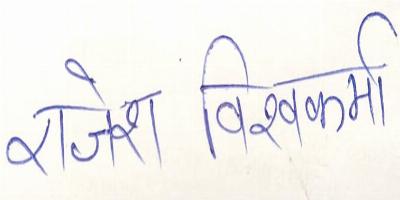 राजेश विश्वकर्मा